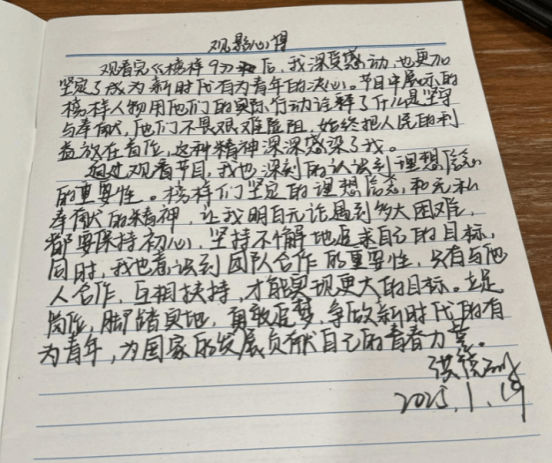 观影心得
观看完《榜样9》后,我深受感动,也更加
坚定了成为新时代有为青年的决心。节目中展示的
榜样人物用他们的实际行动诠释了什么是坚守
与奉献,他们不畏艰难险阻,始终把人民的利
益放在首位,这种精神深深感染了我。
通过观看节目,我也深刻的认识到理想信念
的重要性。榜样们坚定的理想信念,和无私
奉献的精神,让我明白无论遇到多大困难,
都要保持初心,坚持不懈地追求自己的目标,
同时,我也意识到团队合作的重要性,只有与他
人合作,互相扶持,才能实现更大的目标。立足
岗位,脚踏实地,勇敢追梦,争做新时代的有
为青年,为国家的发展贡献自己的青春力量。
2025.1.19